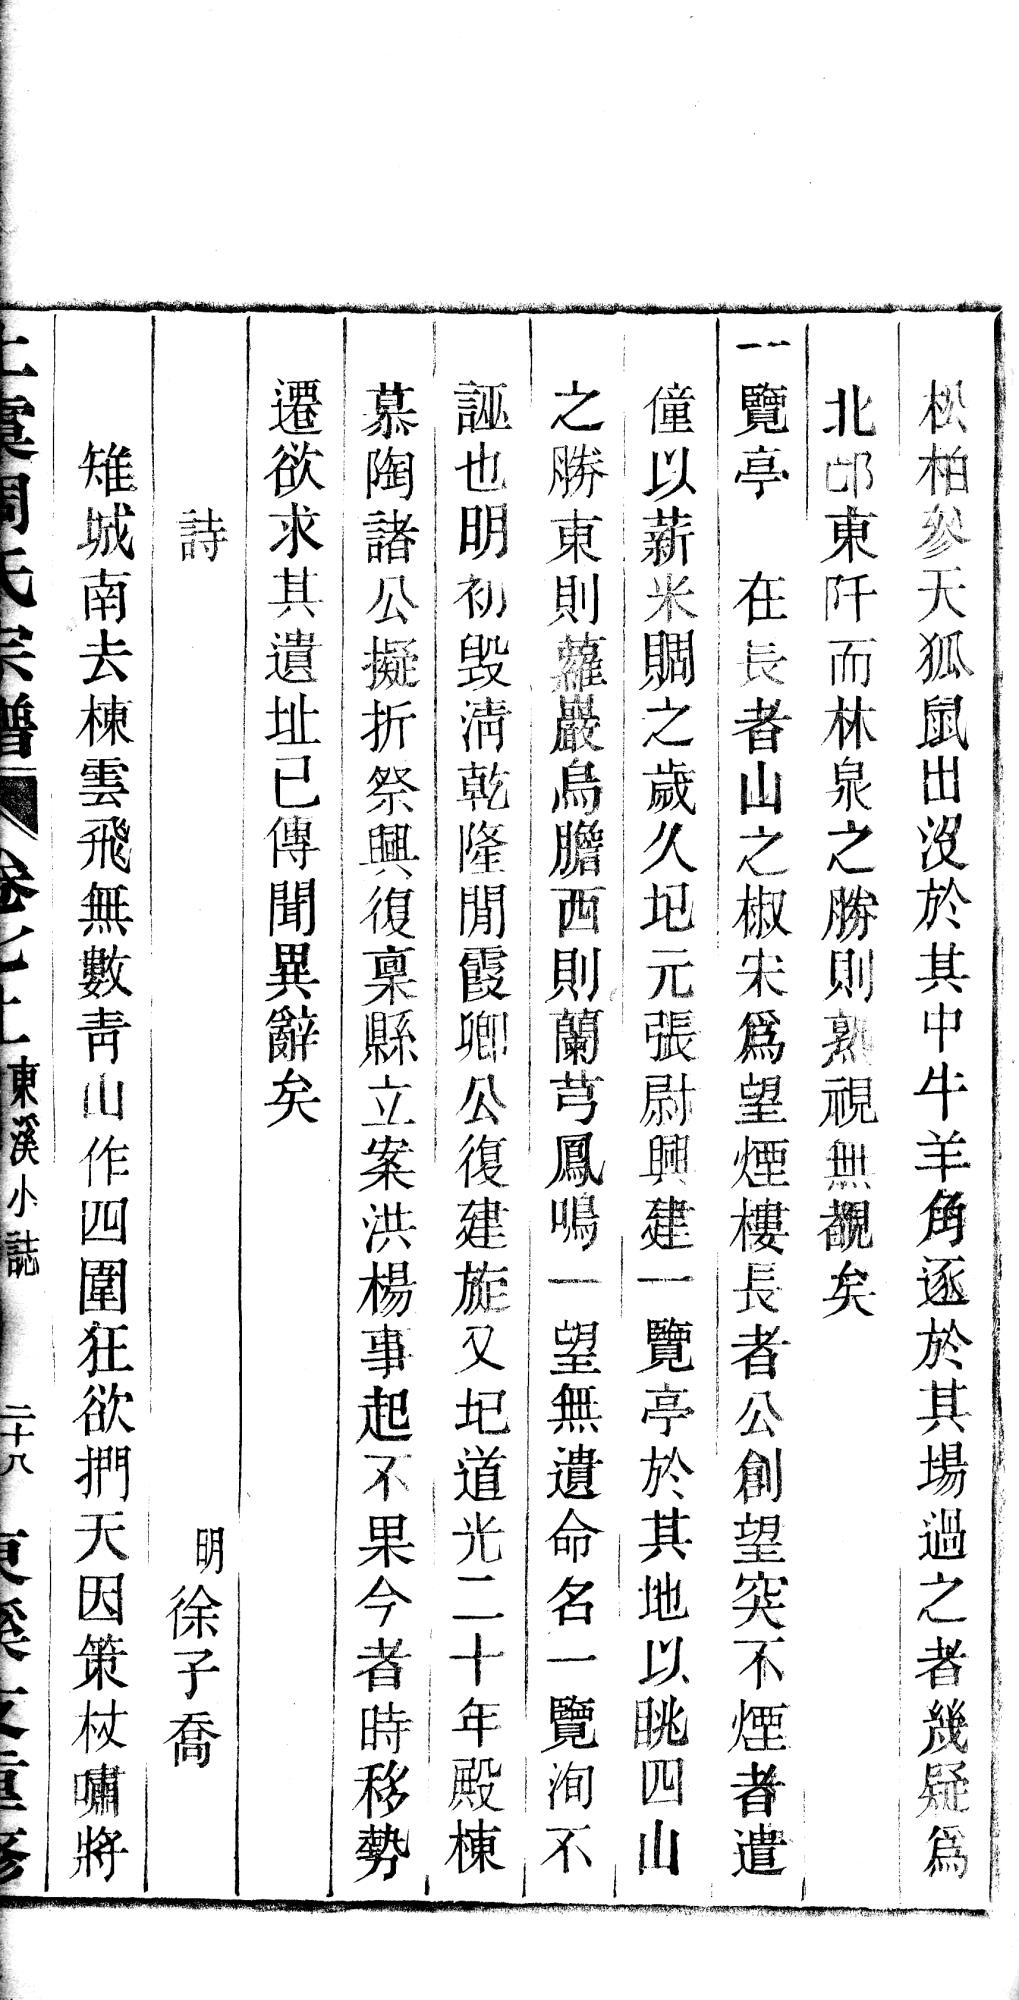 松柏參天狐鼠出沒於其中牛羊角逐於其場過之者幾疑爲
北邙東阡而林泉之勝則熟視無覩矣
一覽亭　在長者山之椒宋爲望煙樓長者公創望突不煙者遣
僮以薪米賙之歲久圯元張尉興建一覽亭於其地以眺四山
之勝東則蘿巖鳥膽西則蘭芎鳳鳴一望無遺命名一覽洵不
誣也明初毀淸乾隆閒霞卿公復建旋又圯道光二十年殿棟
慕陶諸公擬折祭興復稟縣立案洪楊事起不果今者時移勢
遷欲求其遺址已傳聞異辭矣
詩　明徐子喬
雉城南去棟雲飛無數靑山作四圍狂欲捫天因策杖嘯將
上虞周氏宗譜　卷之上　東溪小誌　二十八　東溪支重修